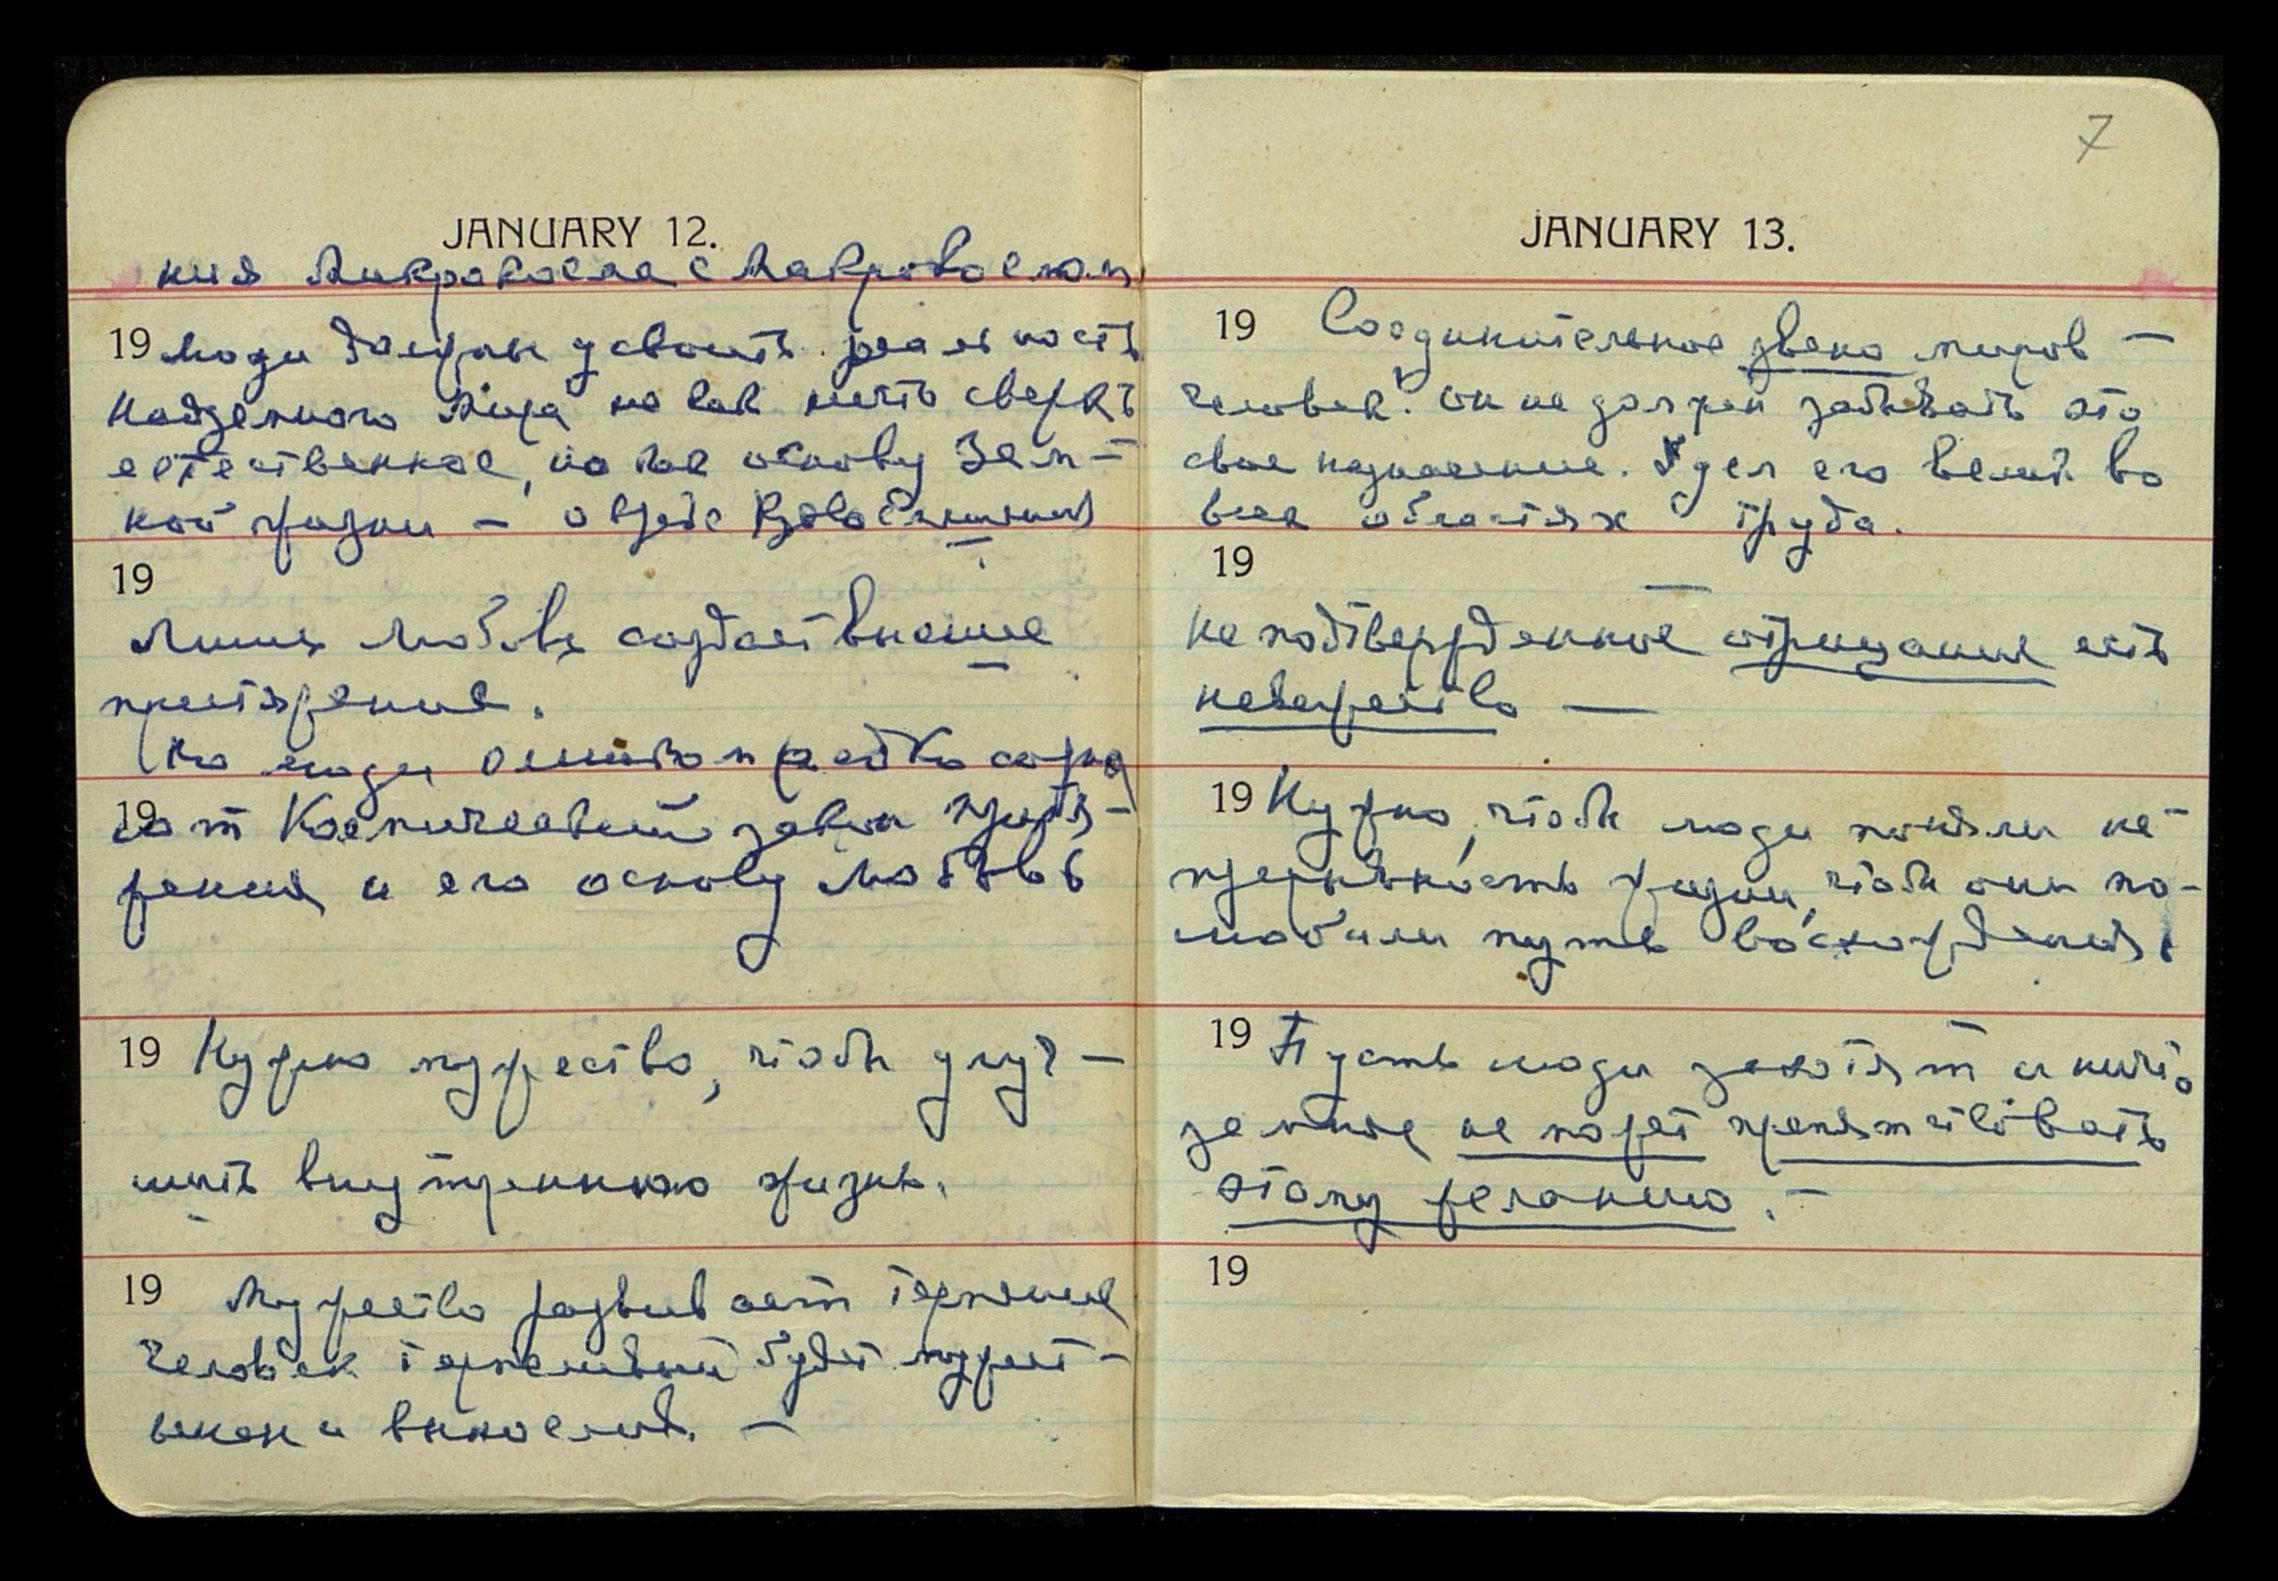 JANUARY 12.
ния Микрокосма с Макрокосмом
19 Люди должны усвоить реальность
Надземного Мира не как нечто сверхъ
естественное, но как основу Зем-
ной жизни –
19
Лишь Любовь создает высшие
притяжения.
Но люди
сают Космический закон Притя-
19
жения и его основу Любовь
19 Нужно мужество, чтобы улуч-
шить внутреннюю жизнь.
19 Мужество развивает терпение
Человек терпеливый будет мужест-
венен и вынослив. –
7
JANUARY 13.
19 Соединительное звено миров –
человек. Он не должен забывать это
свое назначение. Удел его велик во
всех областях труда.
19
Не подтвержденное отрицание есть
невежество —
19 Нужно, чтобы люди поняли не-
прерывность жизни, чтобы они по-
любили путь восхождения.
19 Пусть люди захотят и ничто
земное не может препятствовать
этому желанию. –
19